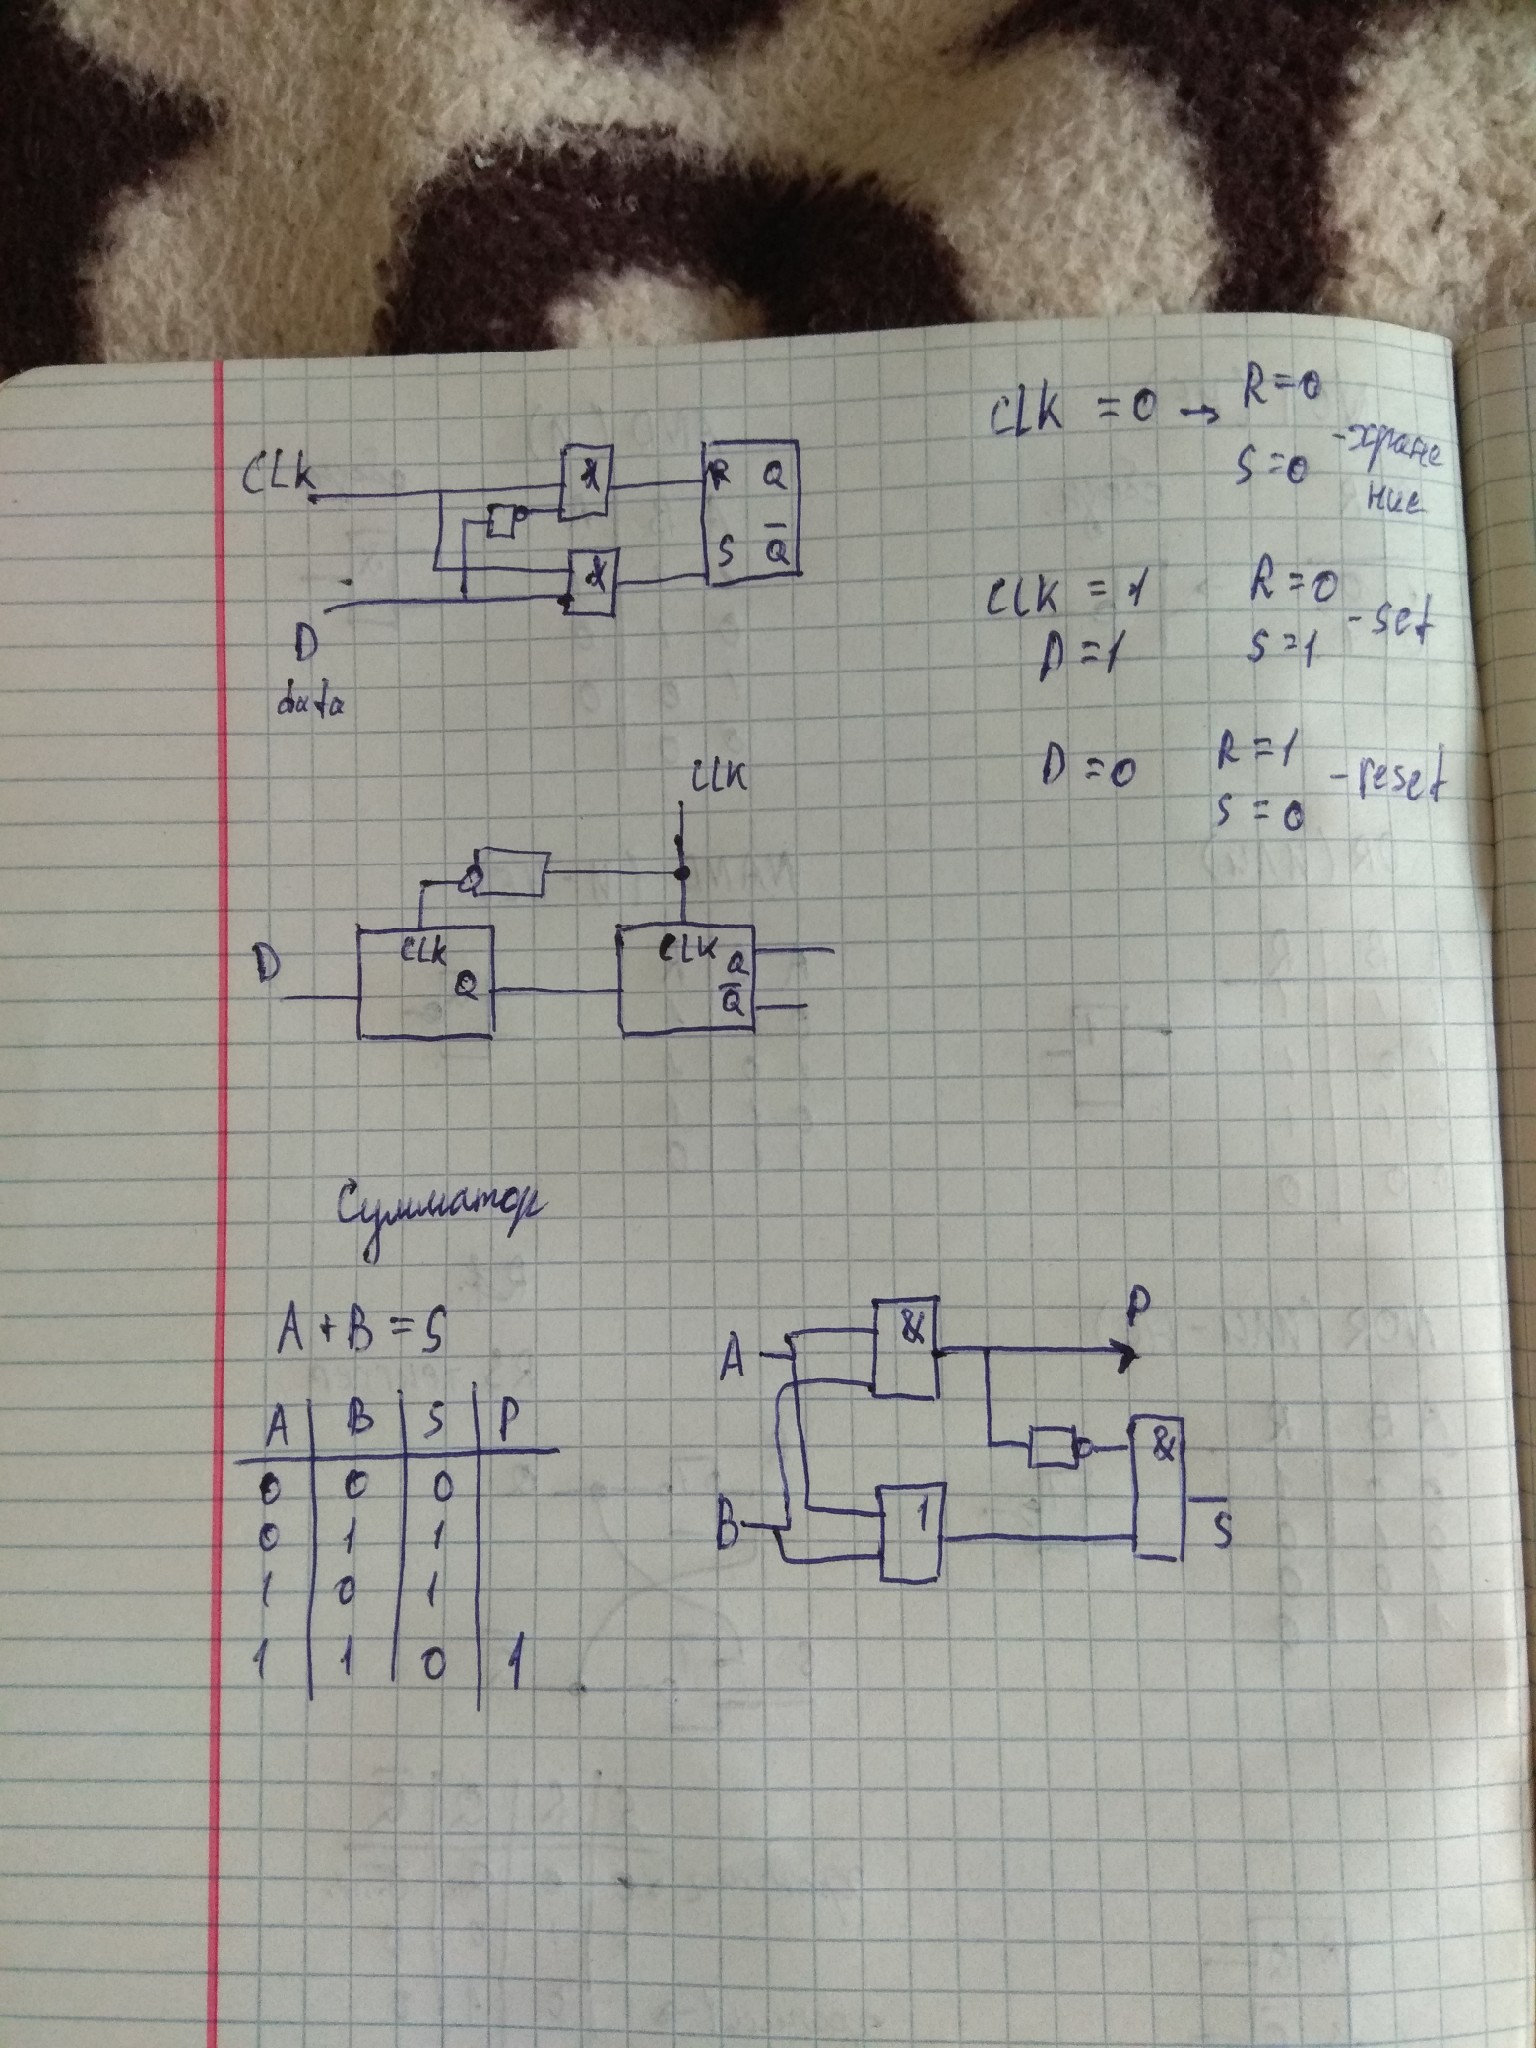 CLK
& R Q
S Q̅
&
D
data
CLK = 0 → R = 0
S = 0 - хране
ние
CLK = 1 R = 0
D = 1 S = 1 - set
D = 0 R = 1
S = 0 - reset
CLK
D CLK Q
CLK Q
Q̅
Сумматор
A + B = S
A B S P
0 0 0
0 1 1
1 0 1
1 1 0 1
A & P
&
B 1 S